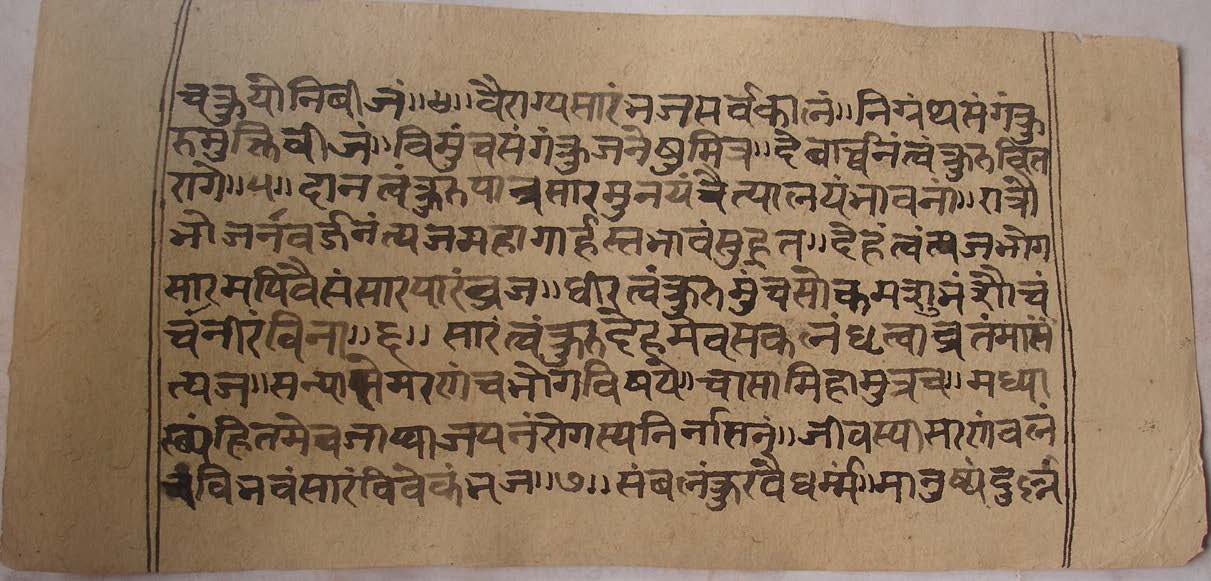 चक्रुयोनिबीजं॥४॥वैराग्यसारंभजसर्वकालं॥निग्रंथसंगंकु
रुमुक्तिवीजं॥विमुंचसंगंकुजनेषुमित्र॥देवार्च्चनंत्वंकुरुवित
रागे॥५॥दानत्वंकुरुपात्रसारमुनयंचैत्यालयंभावना॥रात्रौ
भोजनंवर्ज्जनंत्यजमहागार्हस्तभावंसुहृत॥देहंत्वंत्यजभोग
सारमपिवैसंसारपारंव्रज॥धीरत्वंकुरुमुंचसोक्तमशुभंशौचं
चनीरंविना॥६॥सारंत्वंकुरुदेहमेवसकलंधृत्वाव्रतंमासं
त्यज॥सन्यासेमरणंचभोगविषये॥चासामिहामुत्रच॥मध्या
हितमेवजाप्याजयनंरोगस्यनिर्नासनं॥जीवस्यासारणंवलं
चविभवंसारंविवेकंभज॥७॥संबलंकुरंवैधर्म्मं॥मानुष्यंदुर्ल्लभं